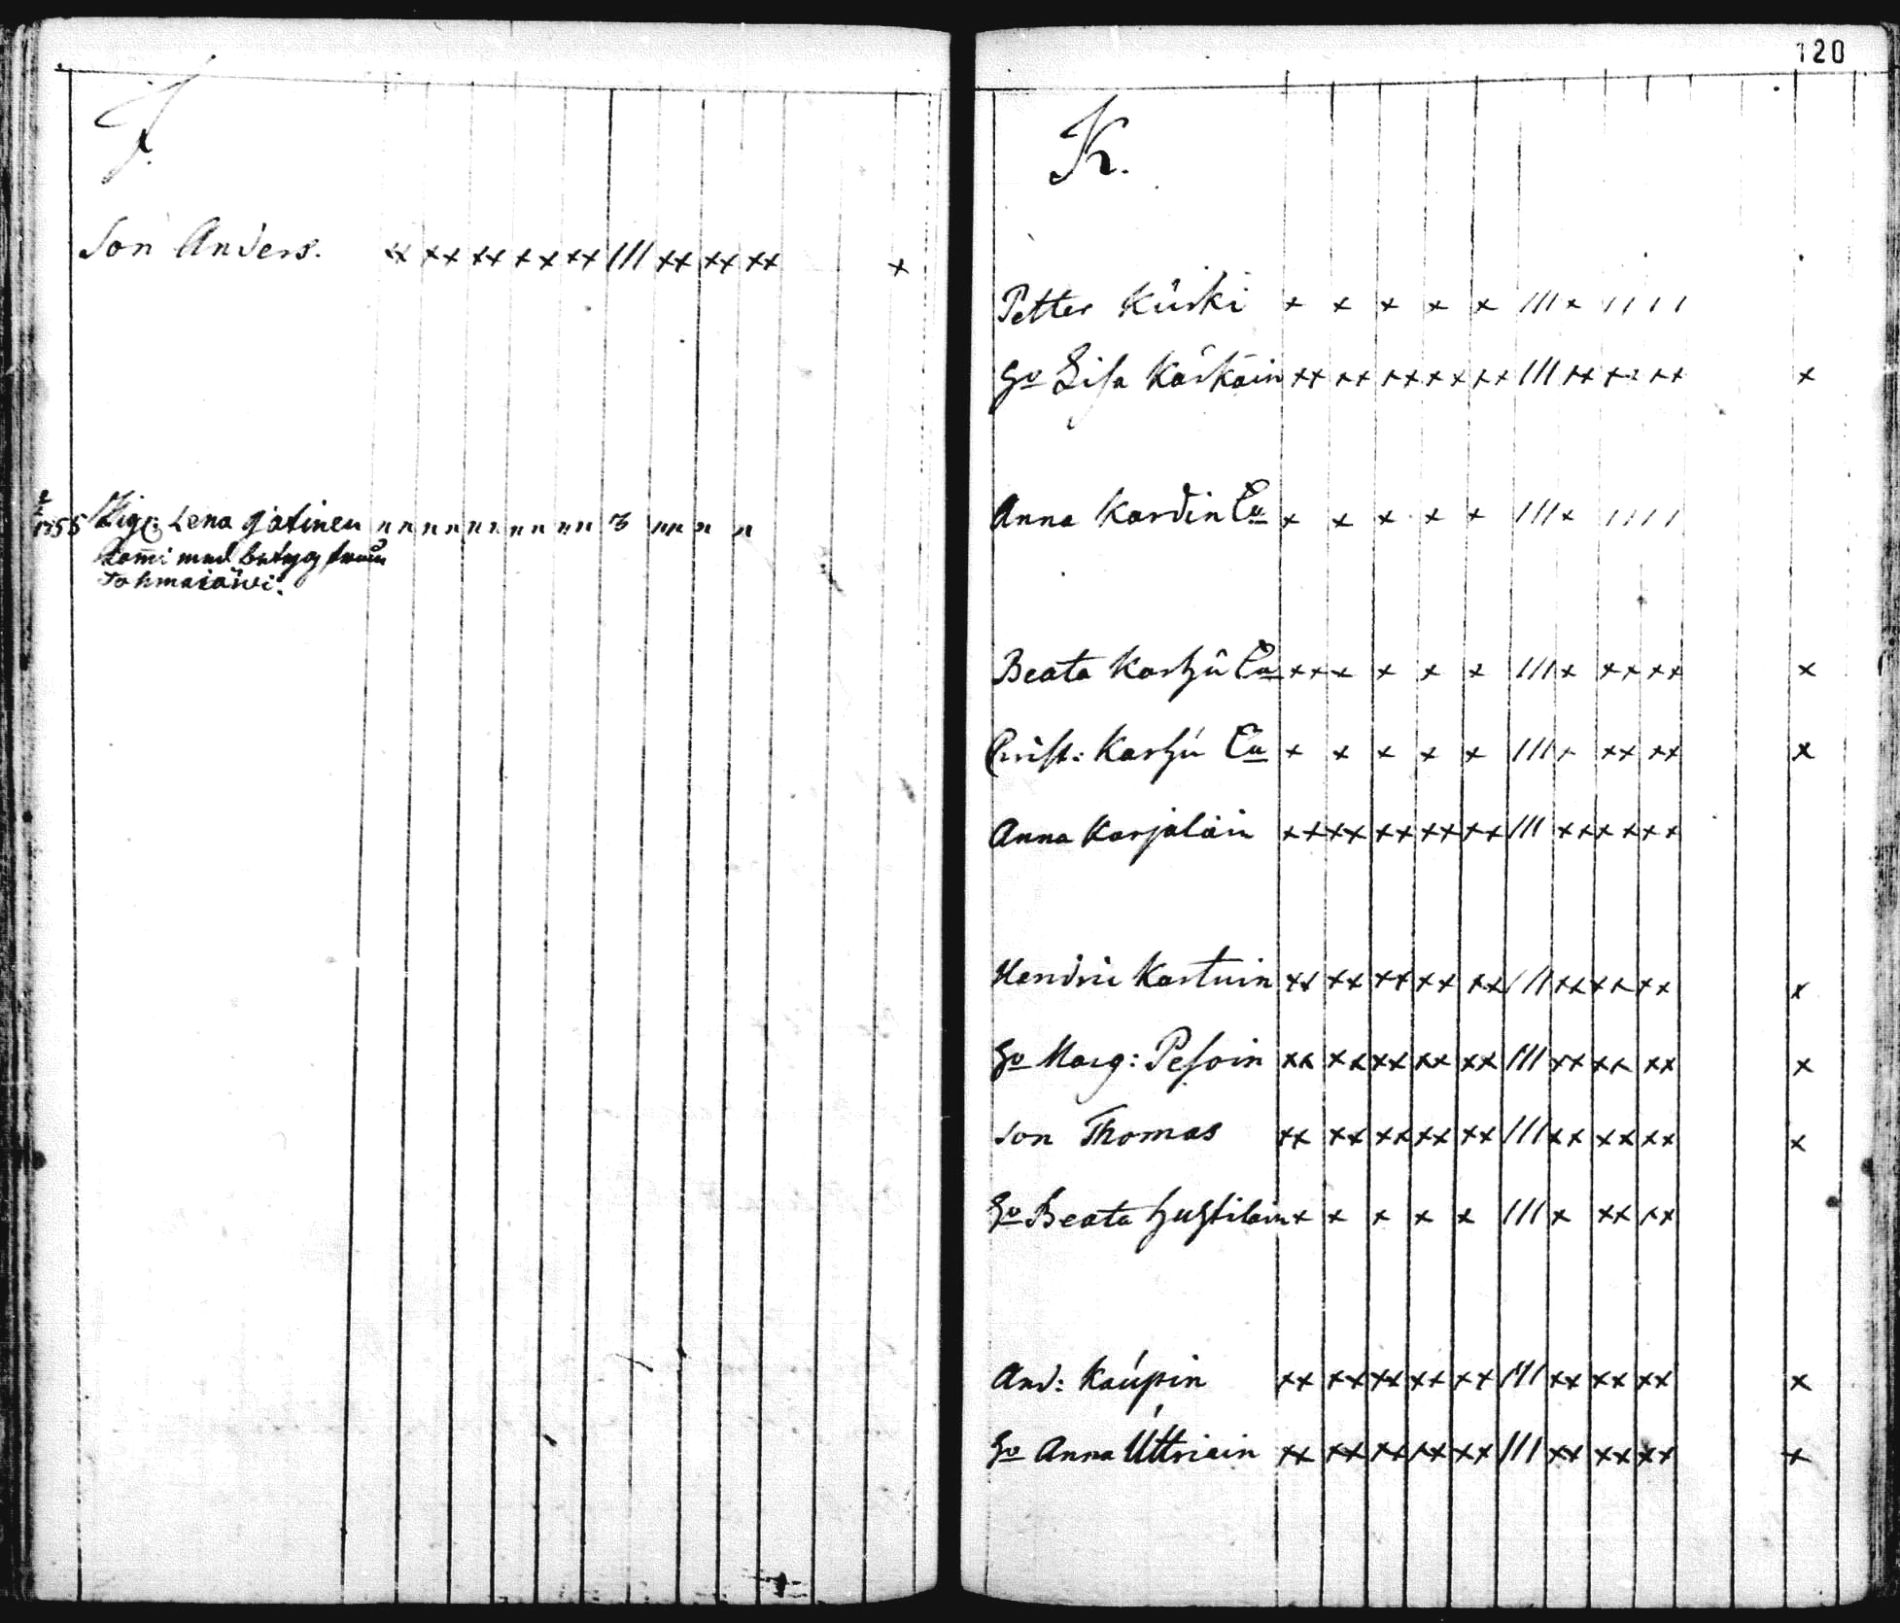 J.
Son Anders. xx xx xx xx xx /// xx xx xx x
1755 Pig: Lena Jatinen n n n n n n n n n n 3 n n n n
kom̄i med betyg från
Tohmajärwi.
120
K.
Petter Kürki x x x x x /// x / / / /
Hu Lisa Kärkäin xx xx xx xx xx /// xx xx xx x
Anna Kardin Ea x x x x x /// x / / / /
Beata Karhu Ea xx x x x x /// x xx xx x
Christ: Karhú Ea x x x x x /// x xx xx x
Anna Karjalain xx xx xx xx xx /// xx xx xx
Hendric Kartuin xx xx xx xx xx /// xx xx xx x
Hu Marg: Pesoin xx xx xx xx xx /// xx xx xx x
Son Thomas xx xx xx xx xx /// xx xx xx x
Hu Beata x x x x x /// x xx xx
And: Kaúpin xx xx xx xx xx /// xx xx xx x
Hu Anna Uttriain xx xx xx xx xx /// xx xx xx x